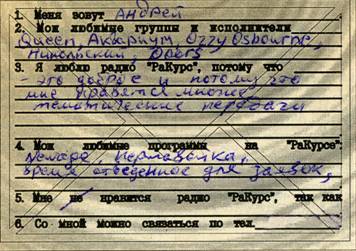 1. Меня зовут АНДРЕЙ
2. Мои любимые группы и исполнители
Queen, Аквариум, Ozzy Osbourne,
Никольский, Doors
3. Я люблю радио "РаКурс", потому что
- это доброе и потому что
мне нравятся многие
тематические передачи
4. Мои любимые программы на "РаКурсе"
время отведенное для заявок,
5. Мне не нравится радио "РаКурс", так как
6. Со мной можно связаться по тел.